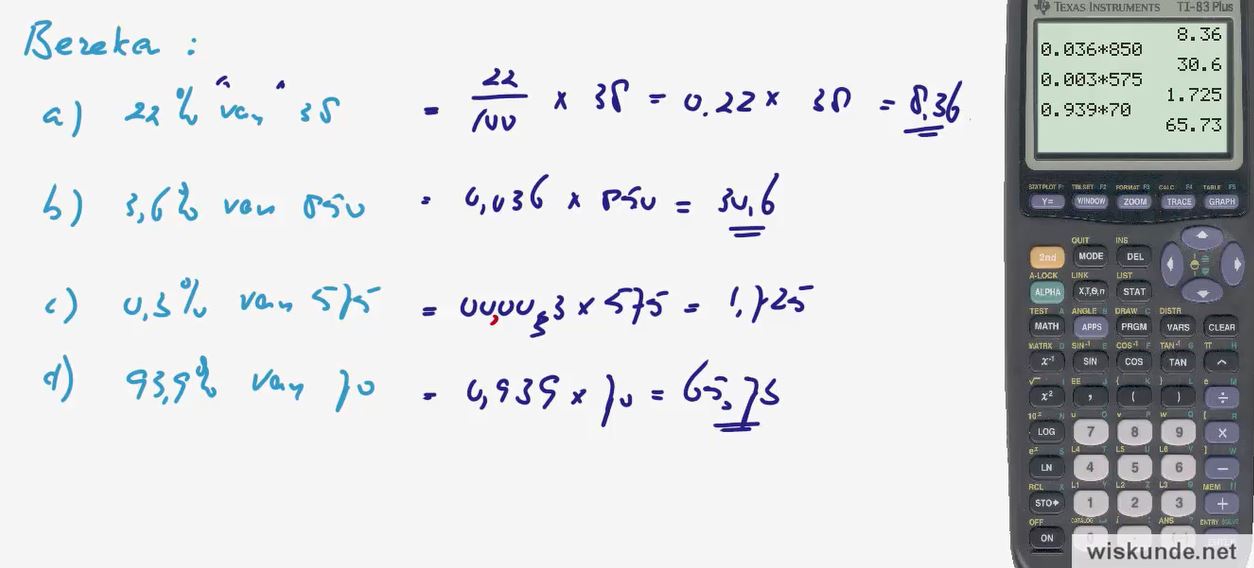 Bereka :
a) 22 % van 38 = 22/100 × 38 = 0.22 × 38 = 8,36
b) 3,6% van 850 = 0,036 × 850 = 30,6
c) 0,3% van 575 = 00,00,3 × 575 = 1,725
d) 93,9% van 70 = 0,939 × 70 = 65,73
TEXAS INSTRUMENTS TI-83 Plus
8.36
0.036*850
30.6
0.003*575
1.725
0.939*70
65.73
STATPLOT F1 TBLSET F2 FORMAT F3 CALC F4 TABLE F5
Y= WINDOW ZOOM TRACE GRAPH
QUIT INS
2nd MODE DEL
A-LOCK LINK LIST
ALPHA X,T,θ,n STAT
TEST A ANGLE B DRAW C DISTR
MATH APPS PRGM VARS CLEAR
MATRX D SIN⁻¹ E COS⁻¹ F TAN⁻¹ G π H
x⁻¹ SIN COS TAN ^
√ I EE J { K } L e M
x² , ( ) ÷
10ˣ N u O v P w Q [ R
LOG 7 8 9 ×
eˣ S L4 T L5 U L6 V ] W
LN 4 5 6 −
RCL X L1 Y L2 Z L3 θ MEM "
STO▸ 1 2 3 +
OFF CATALOG i ANS ? ENTRY SOLVE
ON 0 . (-) ENTER
wiskunde.net